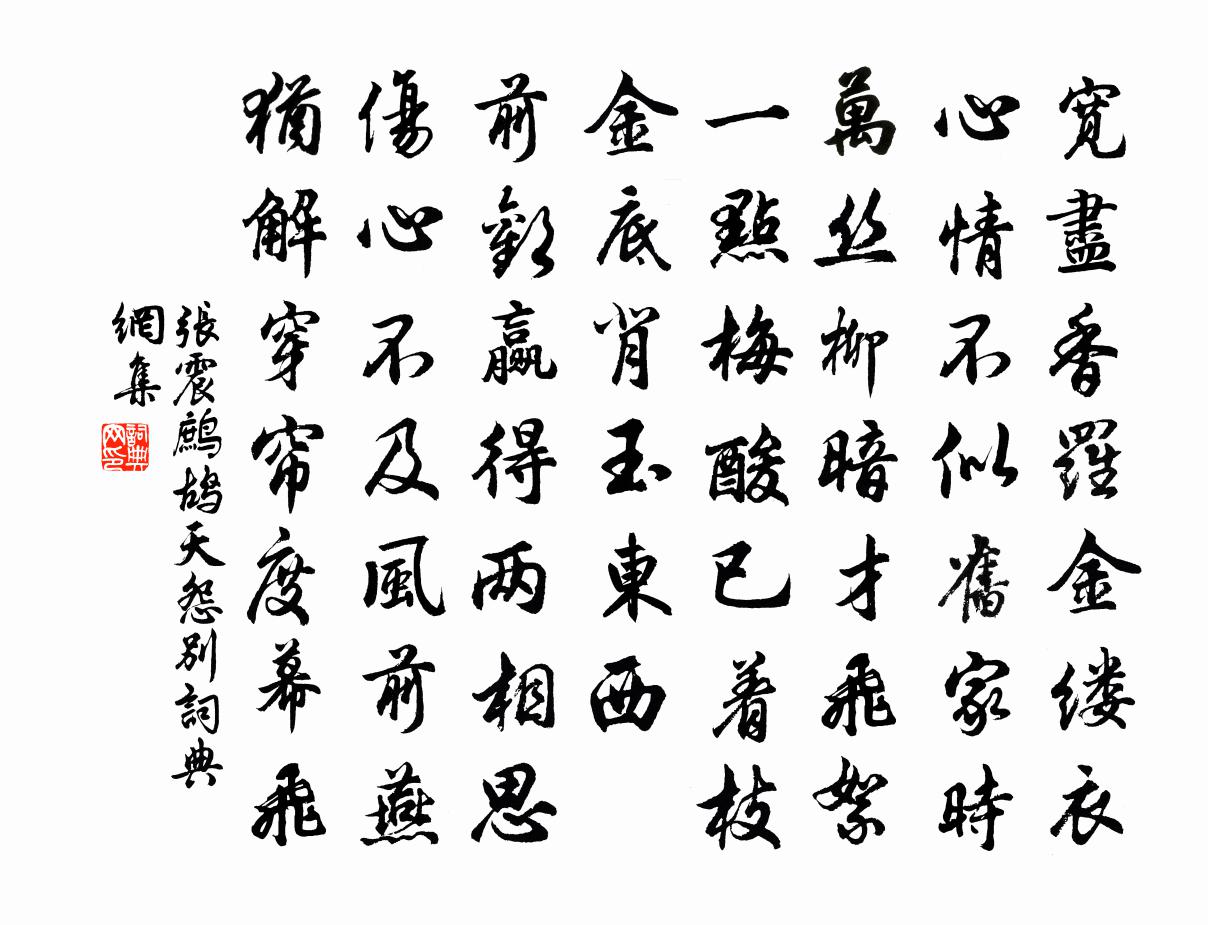 寬盡香羅金缕衣
心情不似舊家時
萬丝柳暗才飛絮
一點梅酸已着枝
金底背玉東西
前歡贏得两相思
傷心不及風前燕
猶解穿帘度幕飛
張震鷓鸪天怨别詞典
網集
詞典
网印